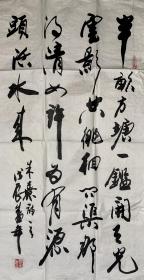 半畝方塘一鑑開天光
雲影共徘徊问渠那
得清如許為有源
頭活水来
朱熹詩